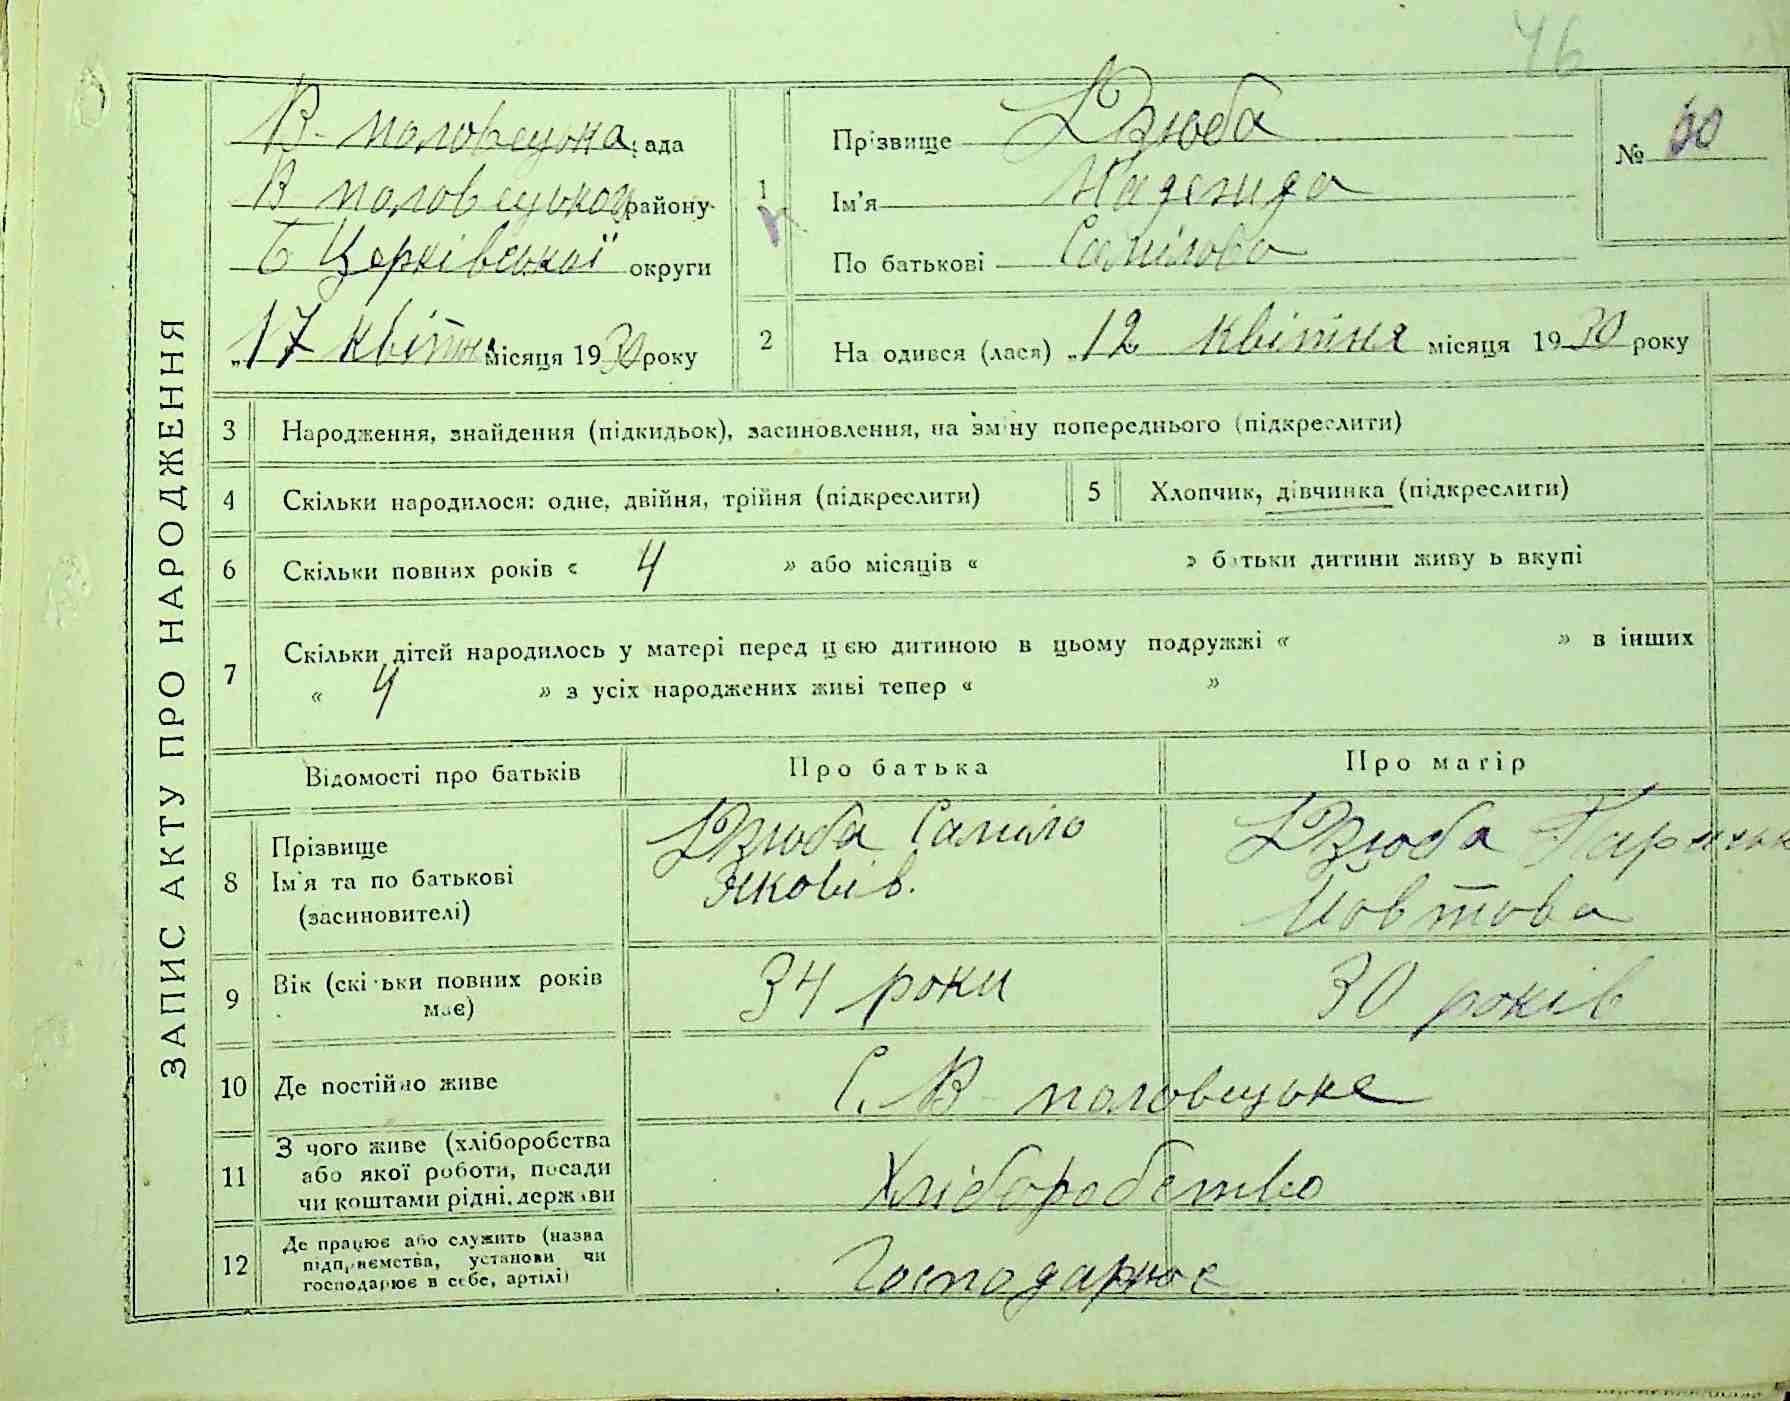 46
ЗАПИС АКТУ ПРО НАРОДЖЕННЯ
В-половецька рада
В половецького району
Б Церківської округи
„17 квітня місяця 1930 року
1 Прізвище Дзюба
Ім'я Надежда
По батькові Самілова
№ 60
2 На одився (лася) „12 квітня місяця 1930 року
3 Народження, знайдення (підкидьок), засиновлення, на зміну попереднього (підкреслити)
4 Скільки народилося: одне, двійня, трійня (підкреслити)
5 Хлопчик, дівчинка (підкреслити)
6 Скільки повних років « 4 » або місяців « » батьки дитини живу ь вкупі
7 Скільки дітей народилось у матері перед цією дитиною в цьому подружжі « » в інших
« 4 » з усіх народжених живі тепер « »
Відомості про батьків Про батька Про матір
8 Прізвище
Ім'я та по батькові
(засиновителі)
Дзюба Саміло
Яковів.
Дзюба
Йовтова
9 Вік (скільки повних років
має)
34 роки
30 років
10 Де постійно живе
С. В-половецьке
11 З чого живе (хліборобства
або якої роботи, посади
чи коштами рідні, держави
Хліборобство
12 Де працює або служить (назва
підприємства, установи чи
господарює в себе, артілі)
Господарює